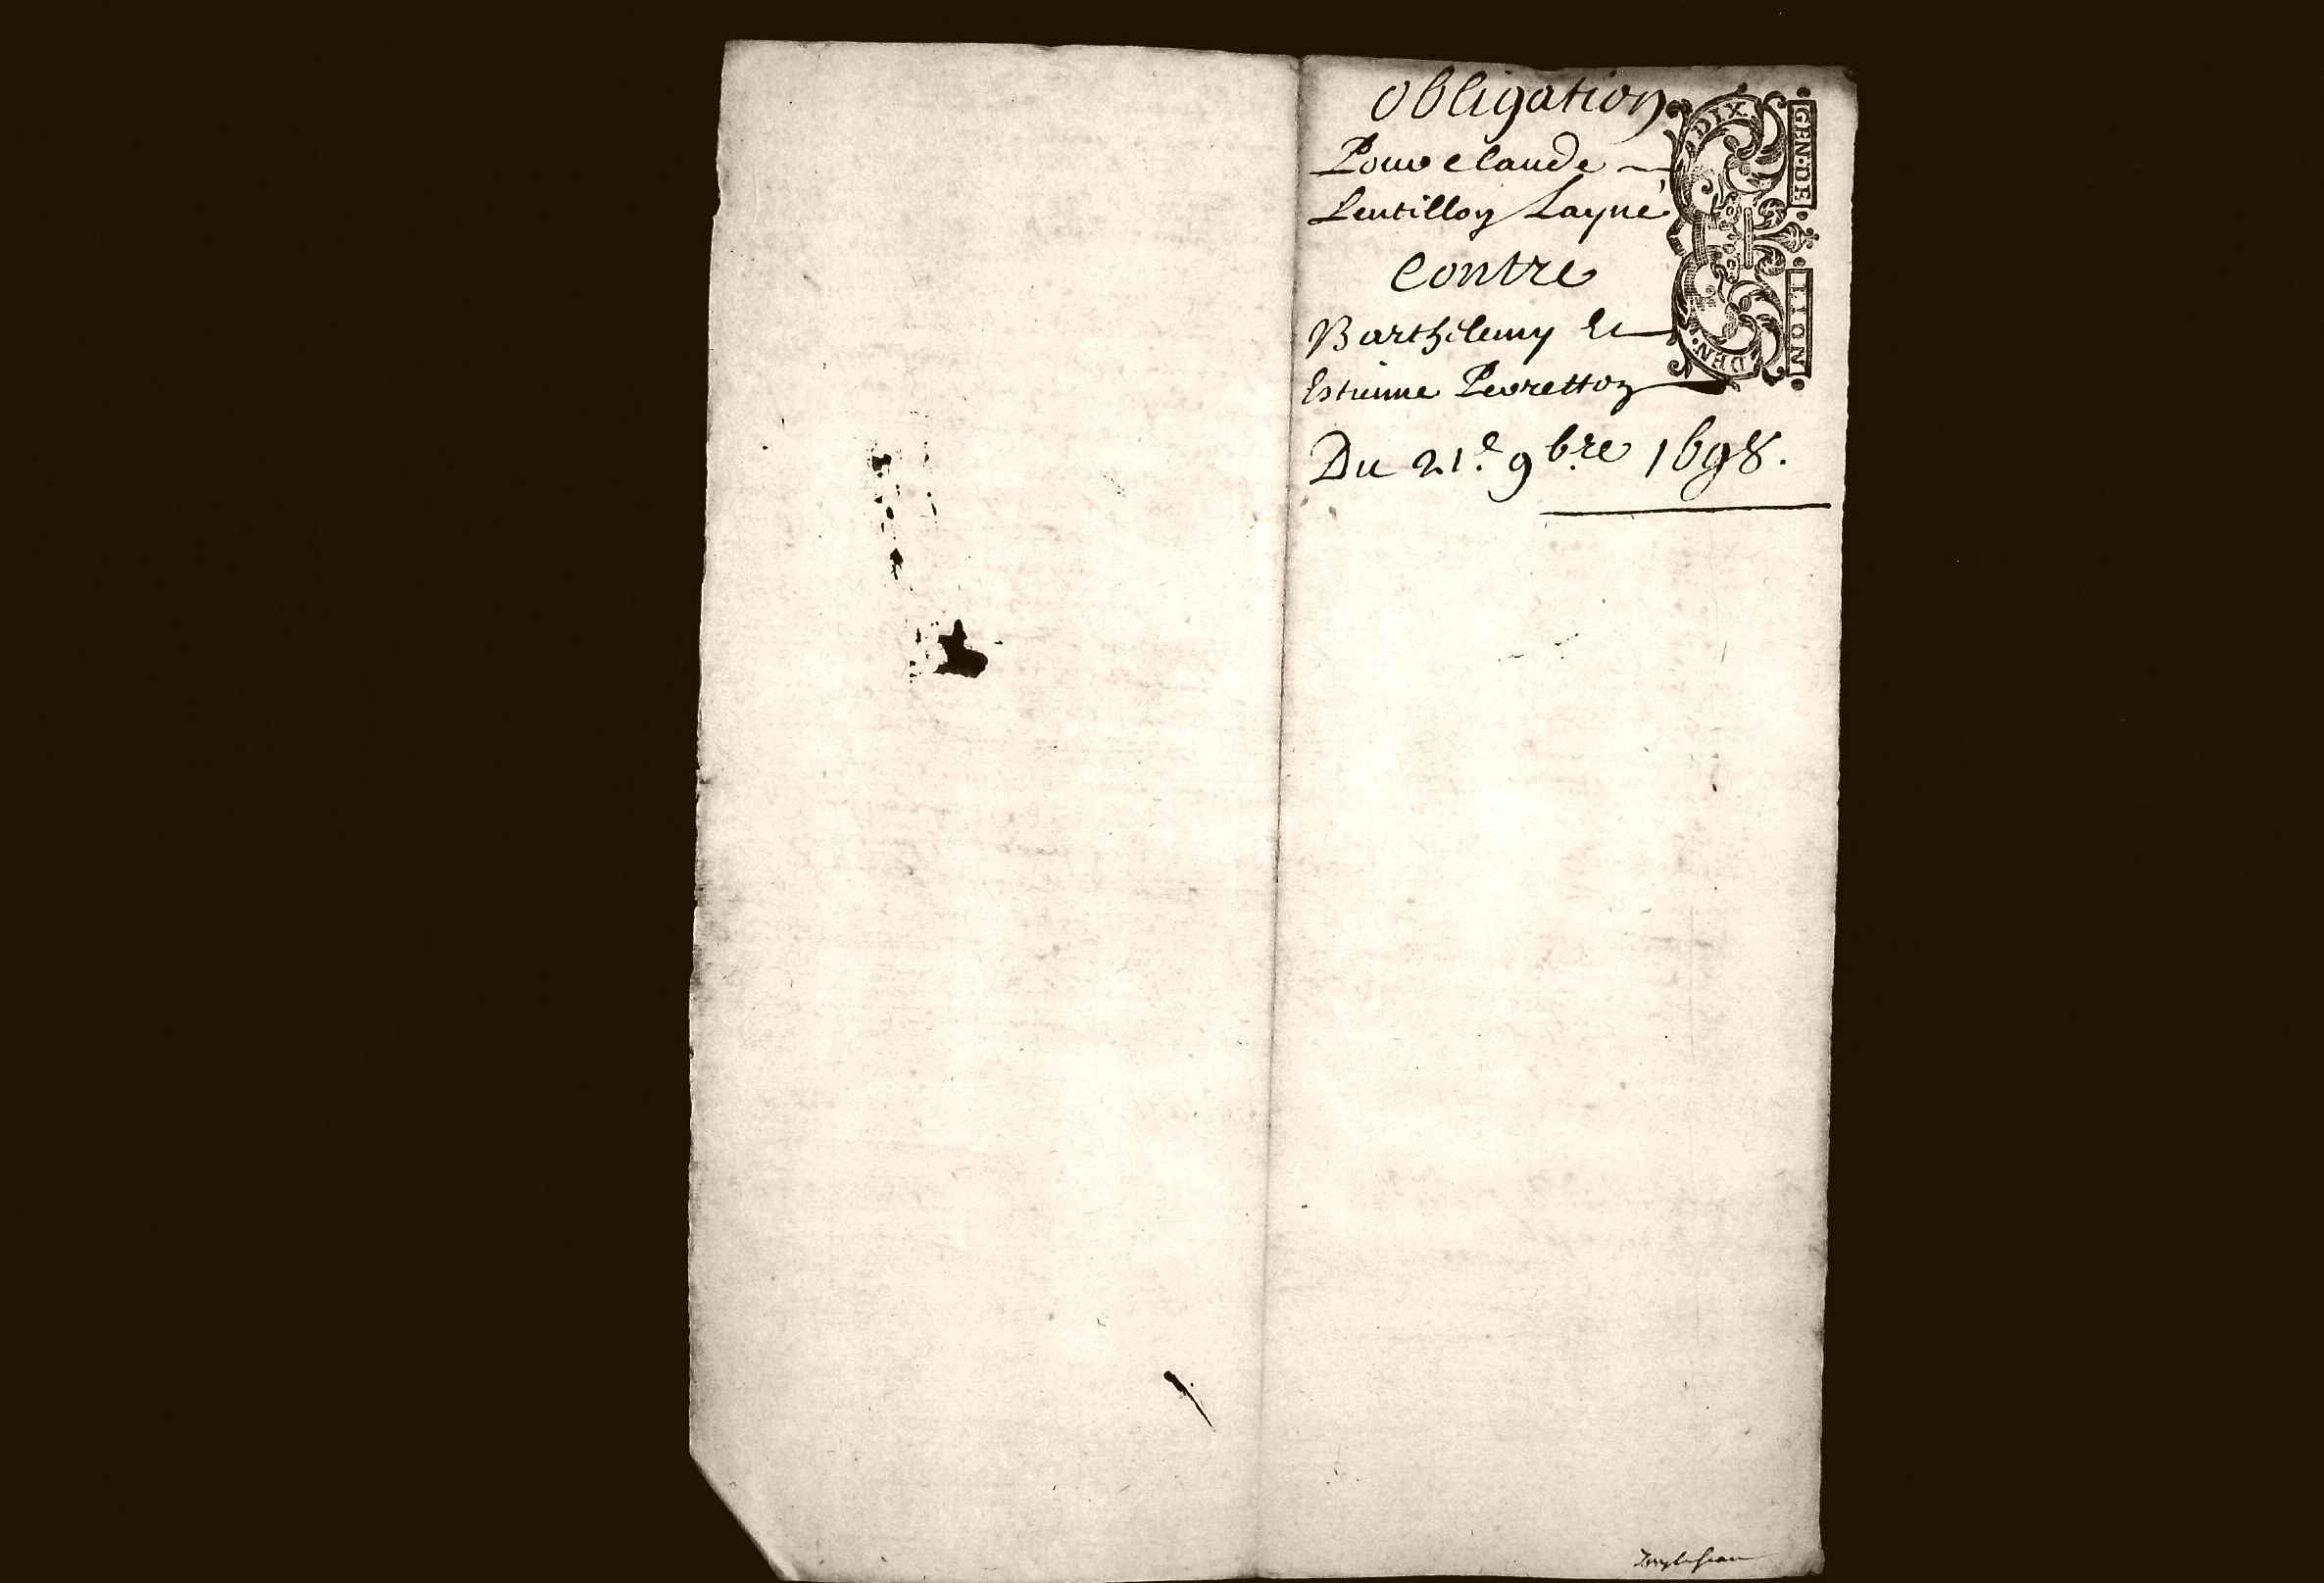 Obligation
Pour claude
Lentillon Layné
Contre
Barthelemy Et
Estienne Peyretton
Du 21e. 9b.re 1698.
GEN·DE LION
DIX DEN·